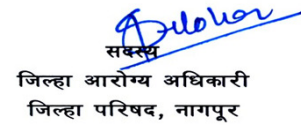 सदस्य
जिल्हा आरोग्य अधिकारी
जिल्हा परिषद, नागपूर